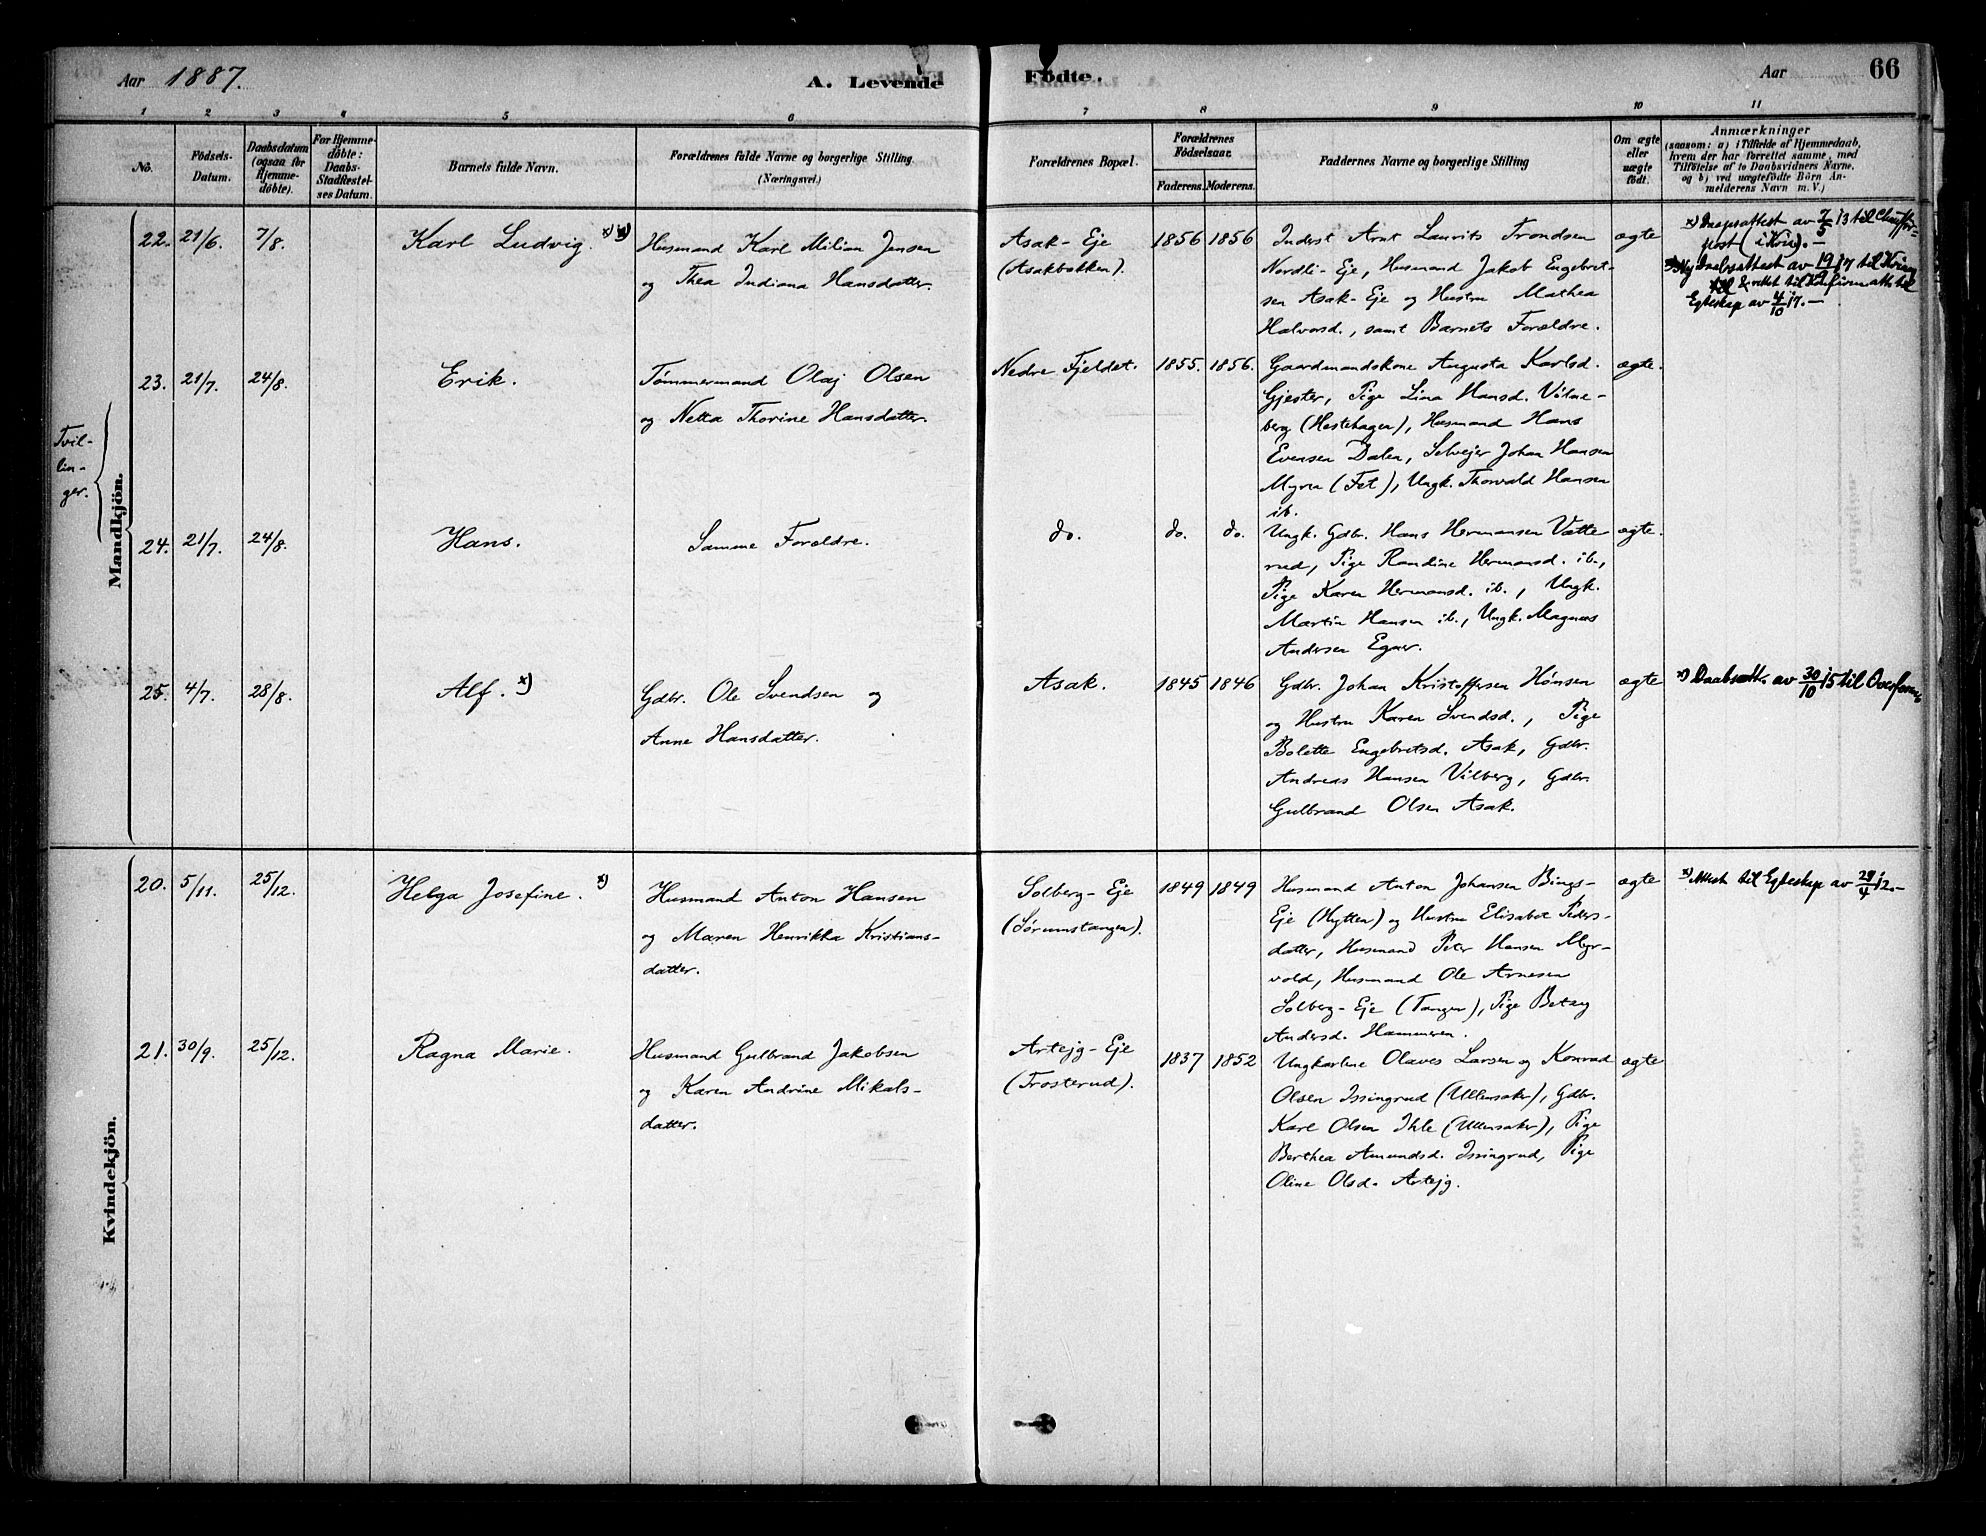 Aar 1887. A. Levende Födte. Aar 66
1 2 3 4 5 6 7 8 9 10 11
No. Födsels-Datum. Daabsdatum (ogsaa for Hjemmedöbte). For Hjemmedöbte: Daabs-Stadfæstelses Datum. Barnets fulde Navn. Forældrenes fulde Navne og borgerlige Stilling. (Næringsvei.) Forældrenes Bopæl. Forældrenes Födselsaar. Faderens. Moderens. Faddernes Navne og borgerlige Stilling Om ægte eller uægte födt. Anmærkninger (saasom: a) i Tilfælde af Hjemmedaab, hvem der har forrettet samme, med Tilföielse af to Daabsvidners Navne, og b) ved uægtefödte Börn Anmelderens Navn m. V.)
Mandkjön.
22. 21/6. 7/8. Karl Ludvig. x) x)
Husmand Karl Milian Jensen
og Thea Indiana Hansdatter.
Asak-Eje
(Asakbakken).
1856 1856
Inderst Arnt Laurits Trondsen
Nordli-Eje, Husmand Jakob Engebret-
sen Asak-Eje og Hustru Mathea
Halvorsd., samt Barnets Forældre.
ægte
x) Daapsattest av 7/5 13 til
post (i Kra). -
Ny Daabsattest av 19/9 17 til
Egteskap av 4/10 17. -
Tvil-
lin-
ger.
23. 21/7. 24/8. Erik.
Tømmermand Olaj Olsen
og Netta Thorine Hansdatter.
Nedre Fjeldet. 1855. 1856.
Gaardmandskone Augusta Karlsd.
Gjester, Pige Lina Hansd. Vilne-
berg (Hestehagen), Husmand Hans
Evensen Dalen, Selvejer Johan Hansen
Myra (Fet), Ungk. Thorvald Hansen
ib.
ægte.
24. 21/7. 24/8. Hans.
Samme Forældre.
do. do. do.
Ungk. Gdbr. Hans Hermansen Vatte
rud, Pige Randine Hermansd. ib.,
Pige Karen Hermansd. ib., Ungk.
Martin Hansen ib., Ungk. Magnus
Andersen Egner.
ægte.
25. 4/7. 28/8. Alf. x)
Gdbr. Ole Svendsen og
Anne Hansdatter.
Asak. 1845 1846
Gdbr. Johan Kristoffersen Hønsen
og Hustru Karen Svendsd., Pige
Bolette Engebretsd. Asak, Gdbr.
Andreas Hansen Vilberg, Gdbr.
Gulbrand Olsen Asak.
ægte
x) Daabsatt. av 30/10 15 til Overform.
Kvindekjön.
20. 5/11. 25/12. Helga Josefine. x)
Husmand Anton Hansen
og Maren Henrikka Kristians-
datter.
Solberg-Eje
(Sørumstangen).
1849 1849
Husmand Anton Johansen Bings-
Eje (Hytten) og Hustru Elisabet Peders-
datter, Husmand Peter Hansen Myr-
vold, Husmand Ole Arnesen
Solberg-Eje (Tangen), Pige Betzy
Andersd. Hammeren.
ægte
x) Attest til Egteskap av 28/4 12.-
21. 30/9. 25/12. Ragna Marie.
Husmand Gulbrand Jakobsen
og Karen Andrine Mikals-
datter.
Artejg-Eje
(Trosterud).
1837 1852
Ungkarlene Olaves Larsen og Konrad
Olsen Issingrud (Ullensaker), Gdbr.
Karl Olsen Ihle (Ullensaker), Pige
Berthea Amundsd. Issingrud, Pige
Oline Olsd. Artejg.
ægte